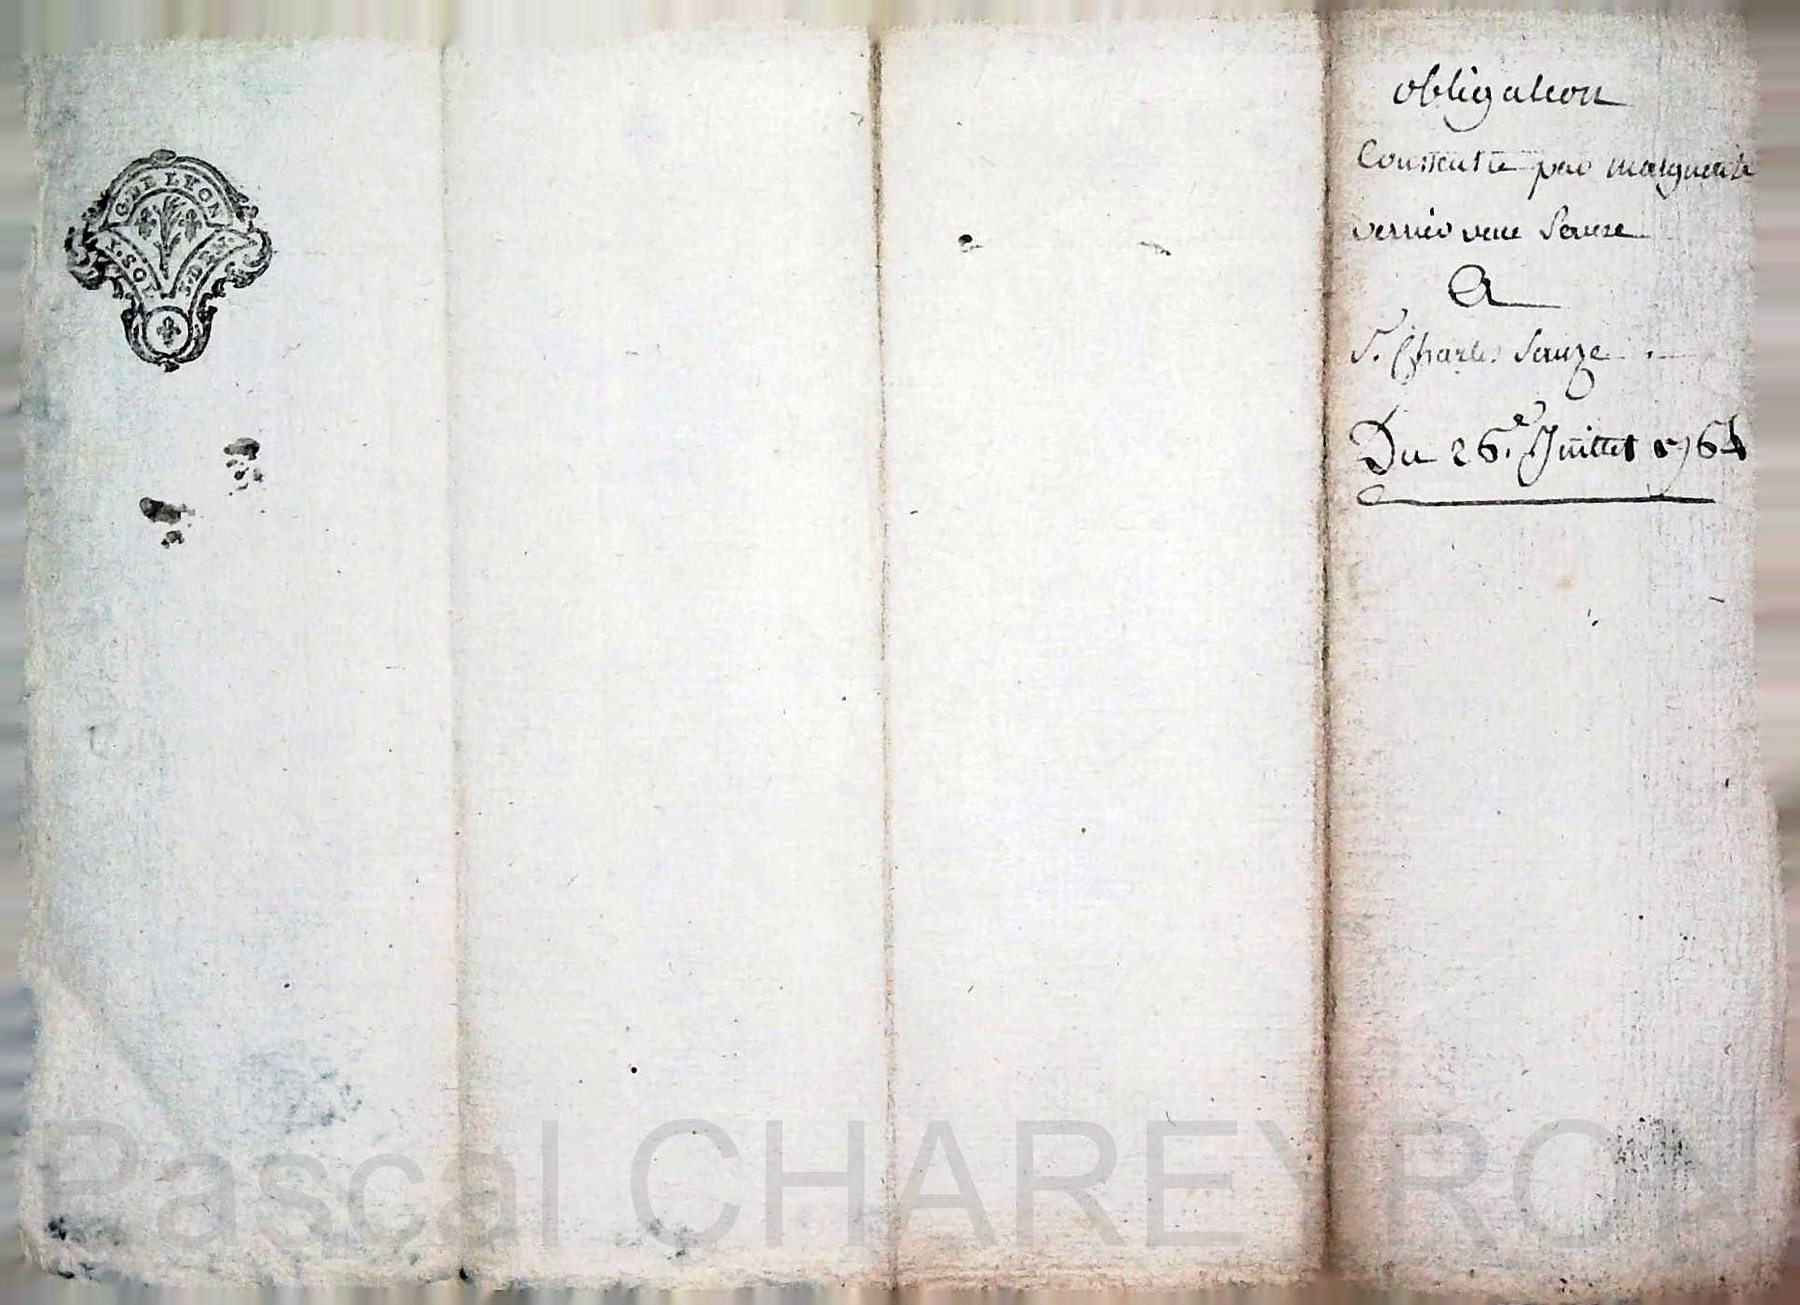 G. DE LYON
obligation
Consentie par marguerite
vernié veue Sauze
A
S. Charles Sauze
Du 26.e Juillet 1764
Pascal CHAREYRON